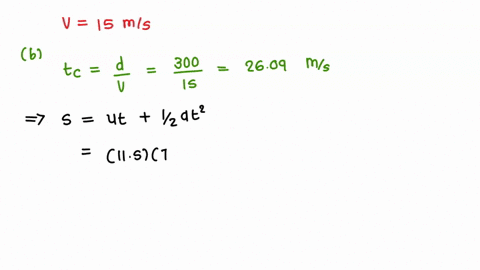 V = 15 m/s
(b)
tc = d/V = 300/15 = 26.09 m/s
⇒ s = ut + 1/2 at²
= (11.5)(7